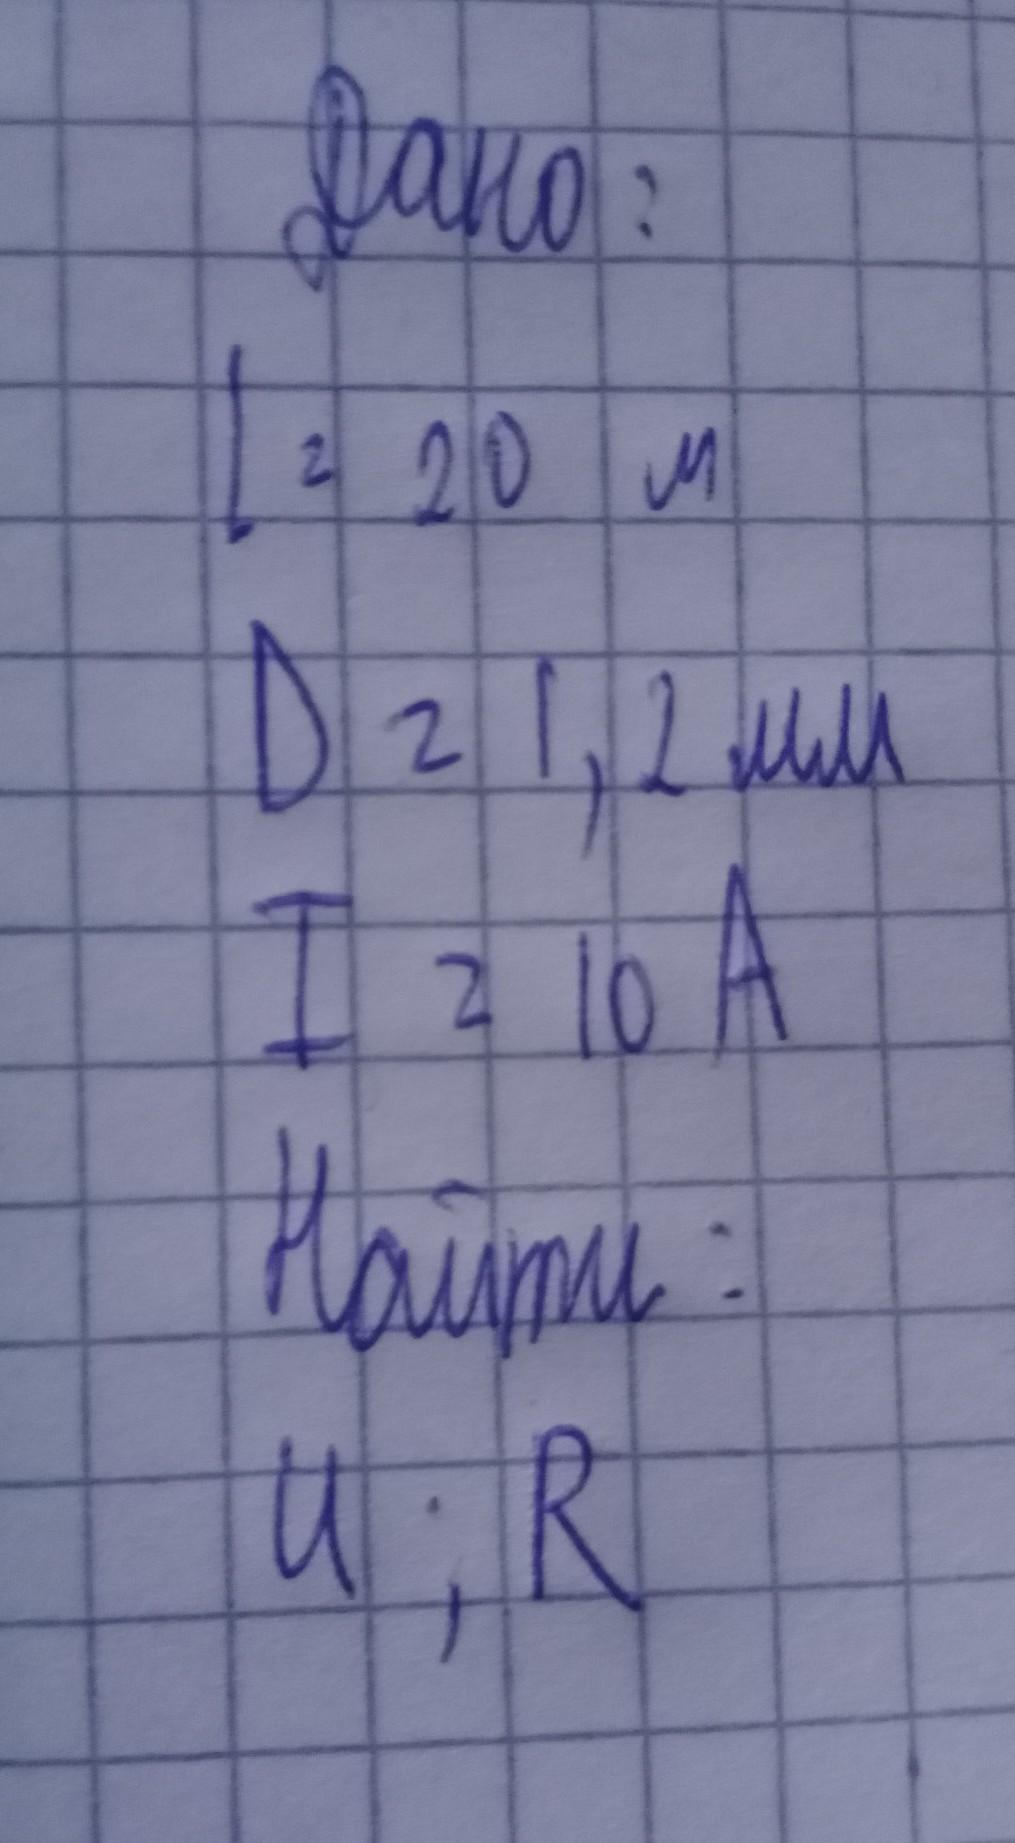 Дано:
l = 20 м
D = 1,2 мм
I = 10 А
Найти:
U ; R